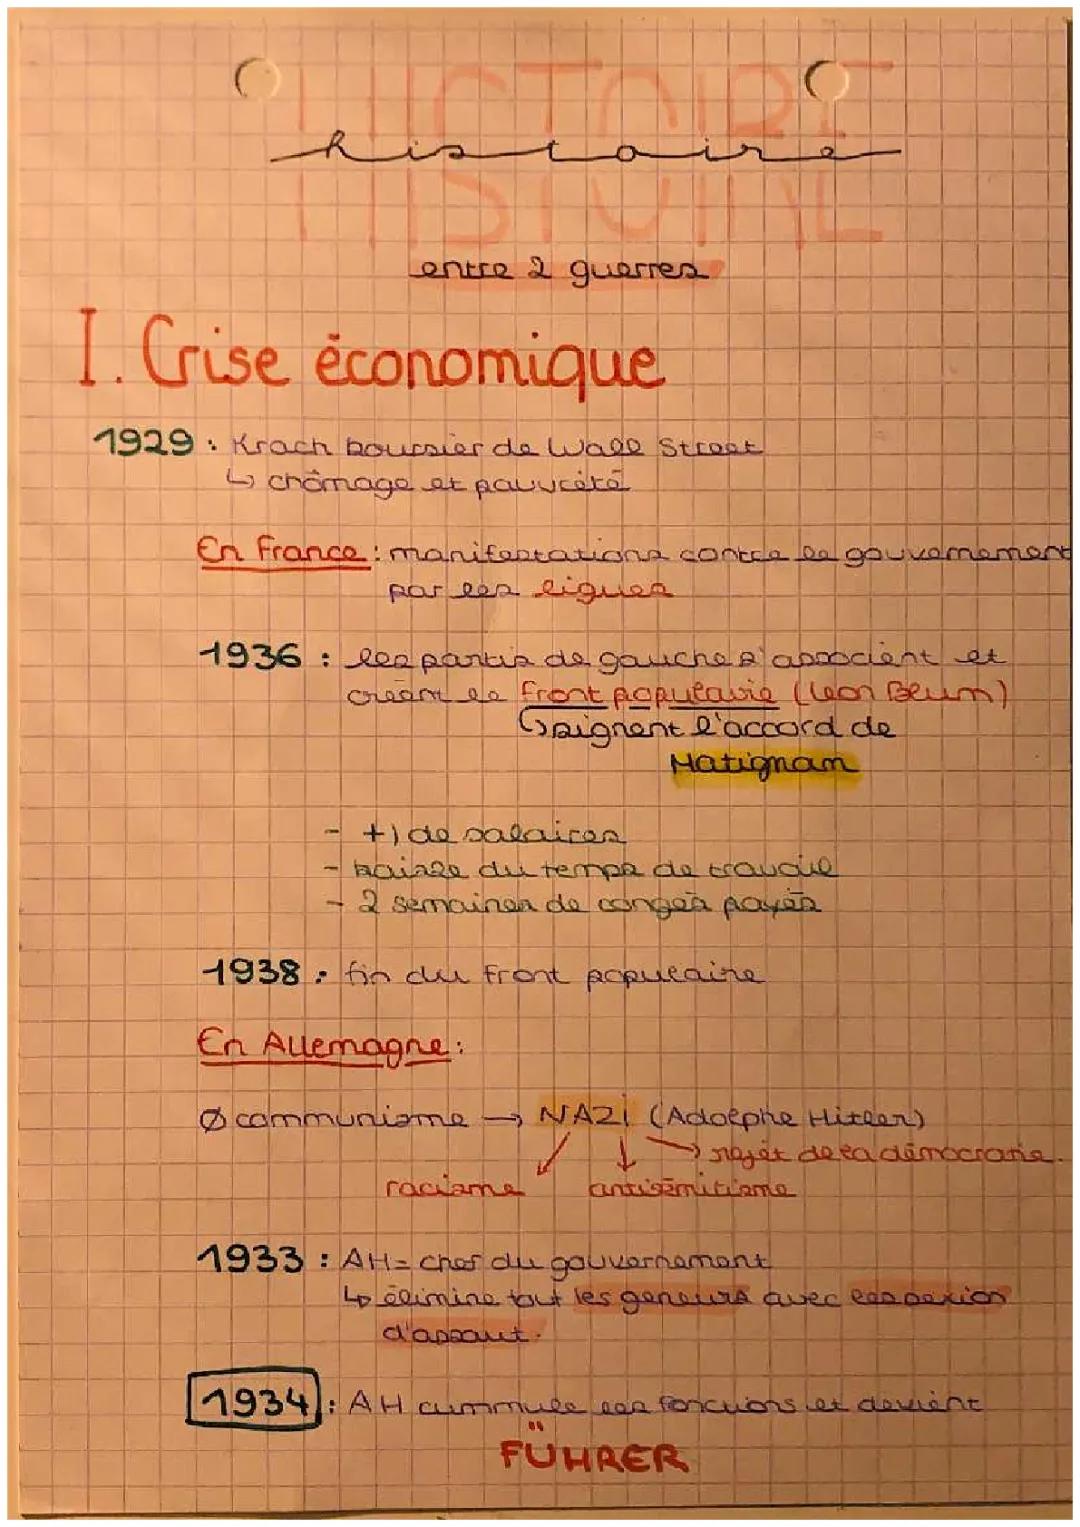 HISTOIRE
histoire
entre 2 guerres
I. Crise économique
1929 : Krach boursier de Wall Street
↳ chômage et pauvreté
En France : manifestations contre le gouvernement
par les ligues
1936 : les partis de gauche s'associent et
créent le front populavie (Leon Blum)
↳ signent l'accord de
Matignam
- +) de salaires
- baisse du temps de travail
- 2 semaines de congés payés
1938 : fin du front populaire
En Allemagne :
Ø communisme → NAZi (Adolphe Hitler)
→ rejet de la démocratie.
racisme antisémitisme
1933 : AH = chef du gouvernement
↳ élimine tout les geneurs avec les
d'assaut.
1934 : AH cummule les fonctions et devient
FÜHRER